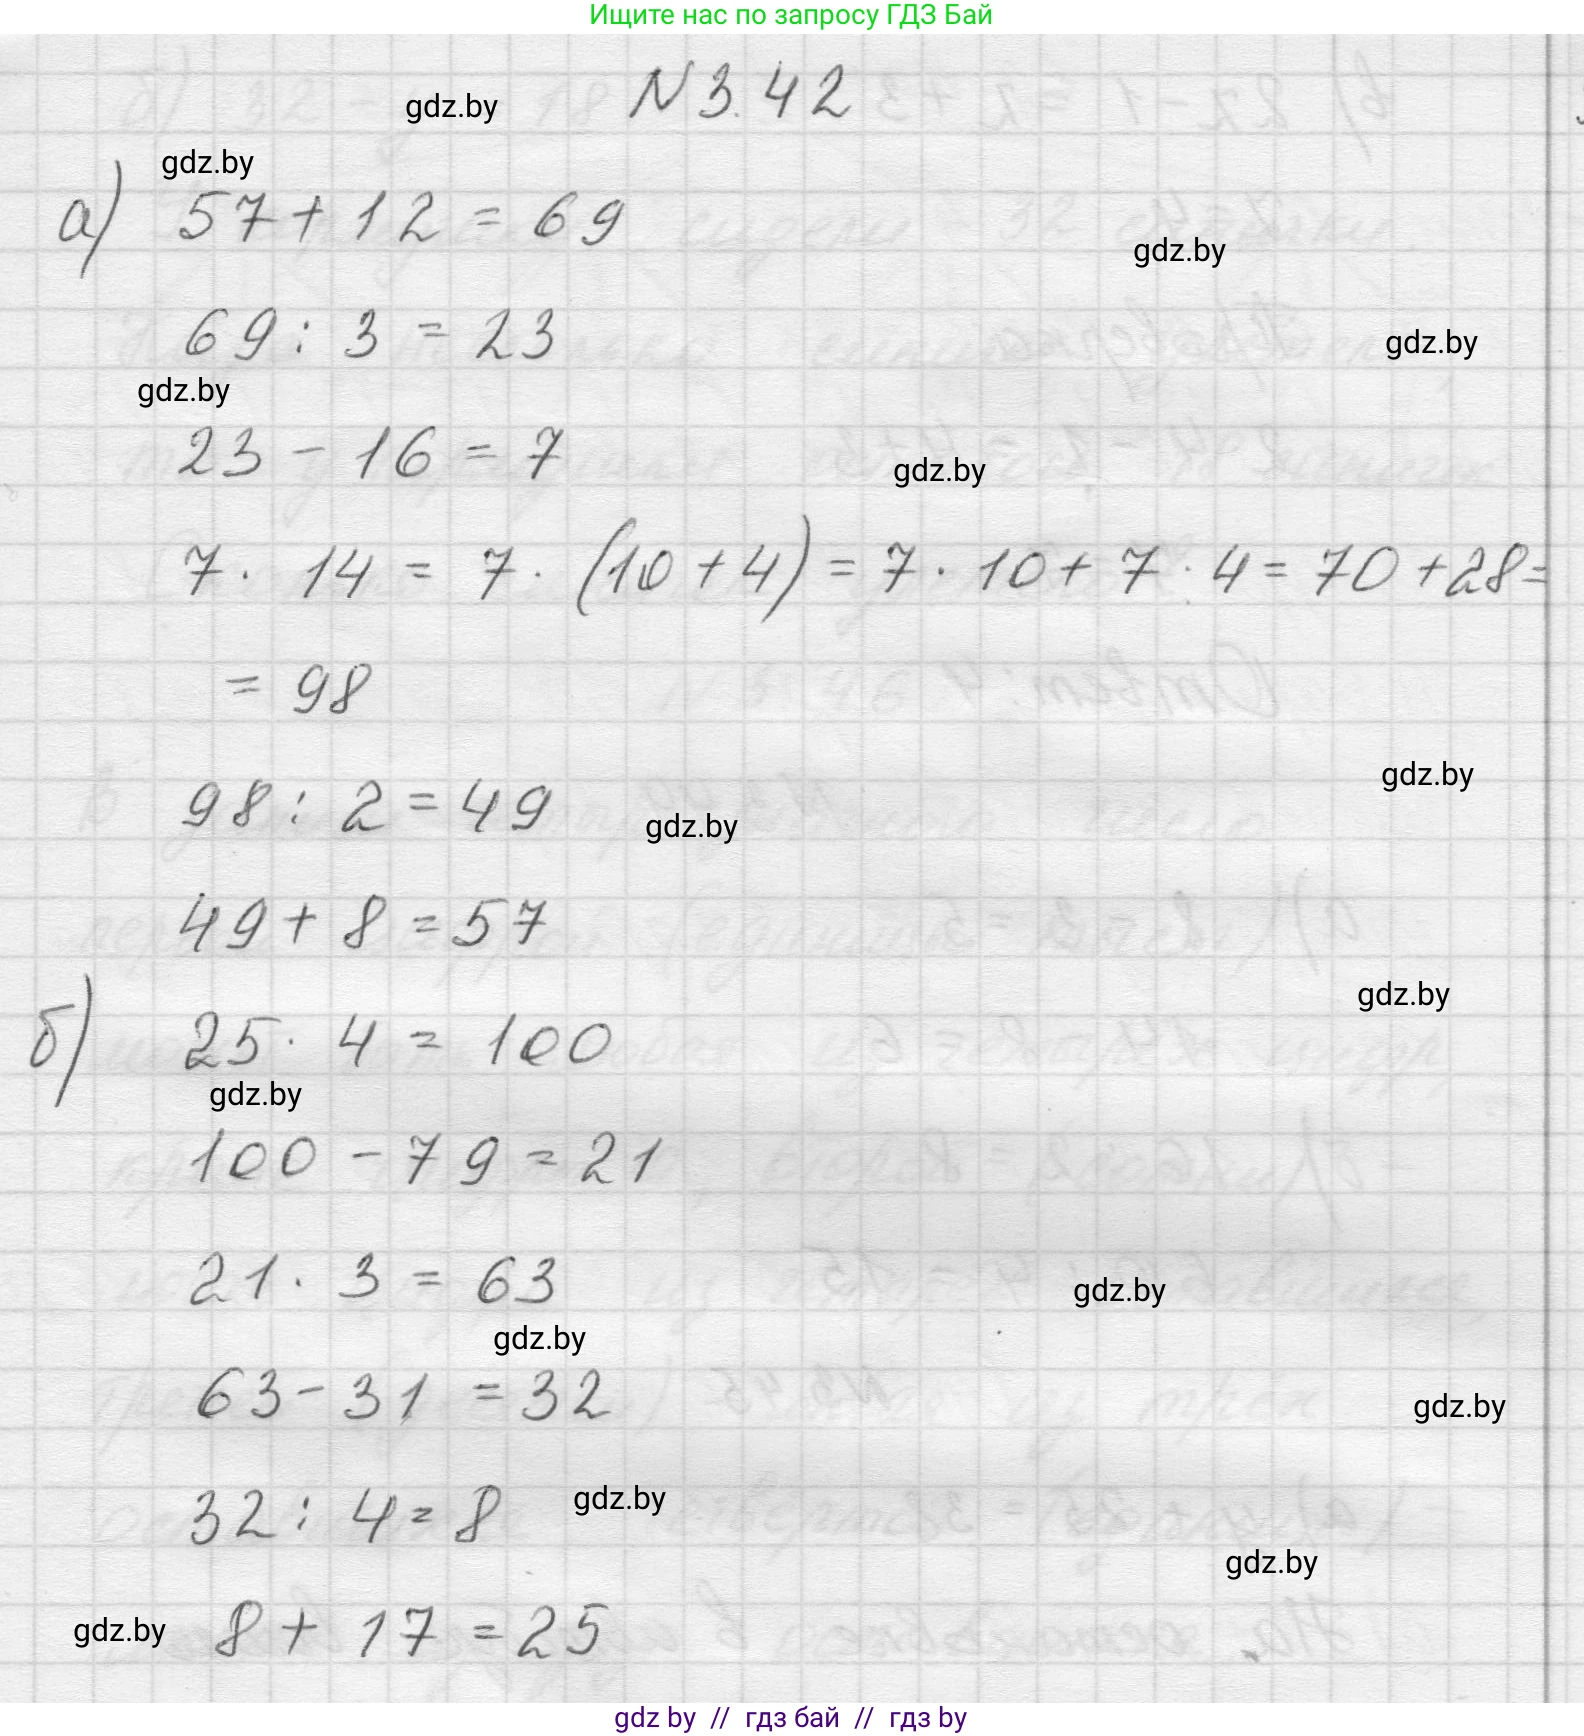 Ищите нас по запросу ГДЗ Бай
gdz.by N 3.42
gdz.by
а) 57 + 12 = 69
gdz.by
69 : 3 = 23
gdz.by
gdz.by
23 - 16 = 7
gdz.by
7 · 14 = 7 · (10 + 4) = 7 · 10 + 7 · 4 = 70 + 28 =
= 98
gdz.by
98 : 2 = 49
gdz.by
49 + 8 = 57
gdz.by
б) 25 · 4 = 100
gdz.by
100 - 79 = 21
21 · 3 = 63
gdz.by
gdz.by
63 - 31 = 32
gdz.by
32 : 4 = 8
gdz.by
gdz.by
gdz.by 8 + 17 = 25
gdz by // гдз бай // гдз by